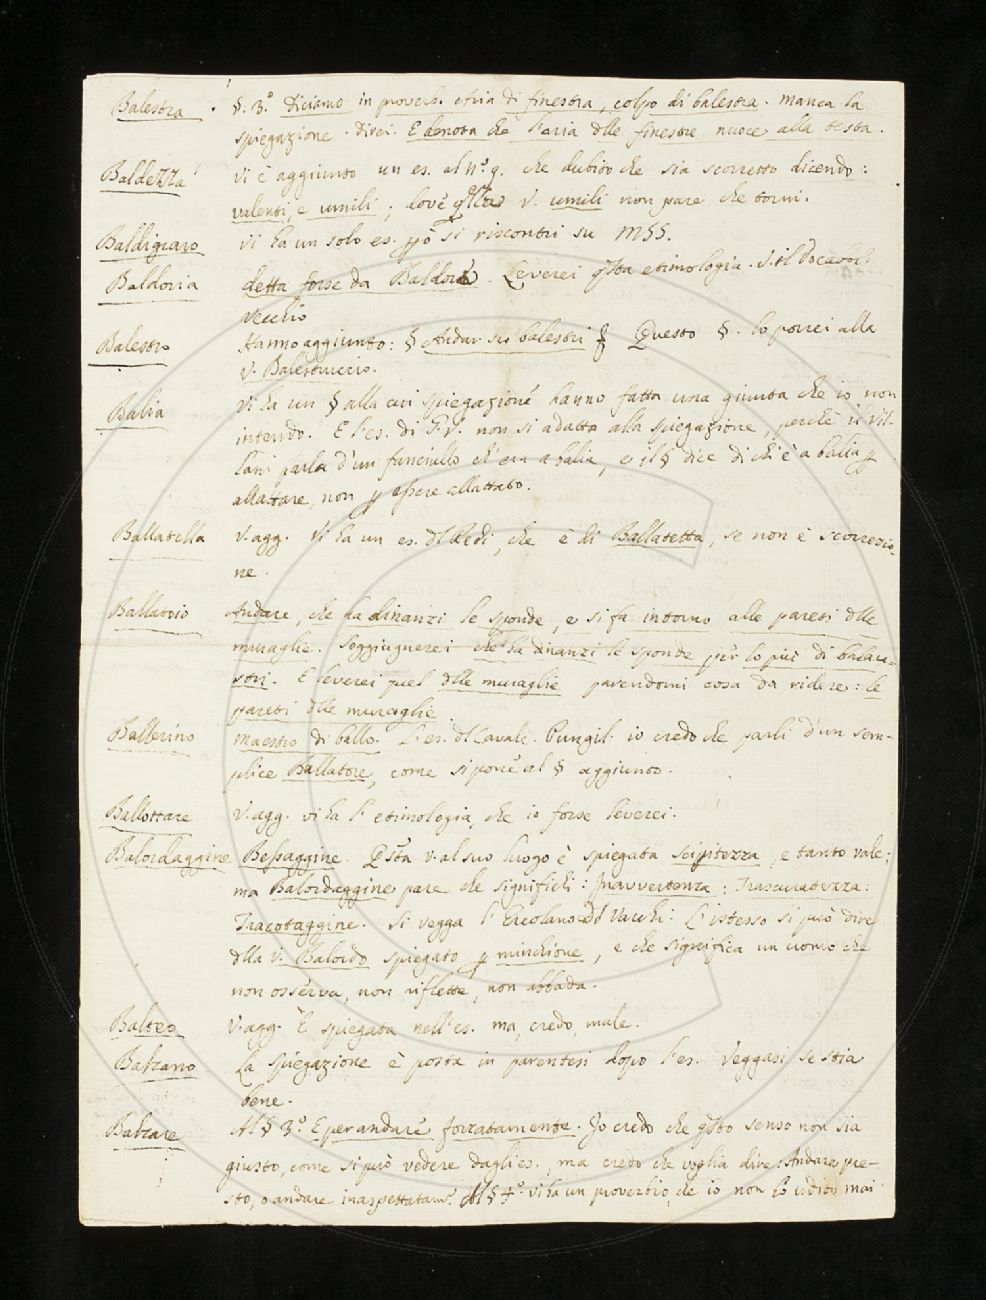 Balestra. §. 3.° Diciamo in proverb. Aria di finestra, colpo di balestra. Manca la
spiegazione. Direi. E denota che l'aria dlle finestre nuoce alla testa.
Baldezza Vi è aggiunto un es. al n.° 9. che dubito che sia scorretto dicendo:
valenti, e umili; dov'è v. umili non pare che torni.
Baldigraro Vi ha un solo es. si riscontri su MSS.
Baldoria detta forse da Baldore. Leverei qsta etimologia. V. il Vocabol.
vecchio
Balestro Hanno aggiunto: § Andar su' balestri Questo §. lo porrei alla
v. Balestruccio.
Balia Vi ha un § alla cui spiegazione hanno fatta una giunta che io non
intendo. E l'es. di F.V. non si adatta alla spiegazione, perchè il Vil-
lani parla d'un fanciullo ch'era a balia, e il § dice di chi è a balia p
allattare, non p essere allattato.
Ballatella V. agg. Vi ha un es. dl Redi, che è di Ballatetta, se non è scorrezio-
ne.
Ballatoio Andare, che ha dinanzi le sponde, e si fa intorno alle pareti dlle
muraglie. Soggiugnerei che ha dinanzi le sponde per lo più di balau-
stri. E leverei quel dlle muraglie parendomi cosa da ridere: le
pareti dlle muraglie.
Ballerino Maestro di ballo. L'es. dl Cavalc. Pungil. io credo che parli d'un sem-
plice Ballatore, come si porrè al § aggiunto.
Ballottare V. agg. vi ha l'etimologia, che io forse leverei.
Balordaggine Bessaggine. Qsta v. al suo luogo è spiegata scipitezza, e tanto vale;
ma Balordaggine pare che significhi: Inavvertenza: Trascuratezza:
Tracotaggine. Si vegga l'Ercolano dl Varchi: L'istesso si può dire
dlla v. Balordo spiegato p minchione, e che significa un uomo che
non osserva, non riflette, non abbada.
Balteo V. agg. È spiegata nell'es. ma, credo, male.
Balzano La spiegazione è posta in parentesi dopo l'es. Veggasi se stia
bene.
Balzare Al § 3.° E per andare forzatamente. Io credo che qsto senso non sia
giusto, come si può vedere dagli es., ma credo che voglia dire: Andare pre-
sto, o andare inaspettatam.e Al § 4.° vi ha un proverbio, che io non ho udito mai